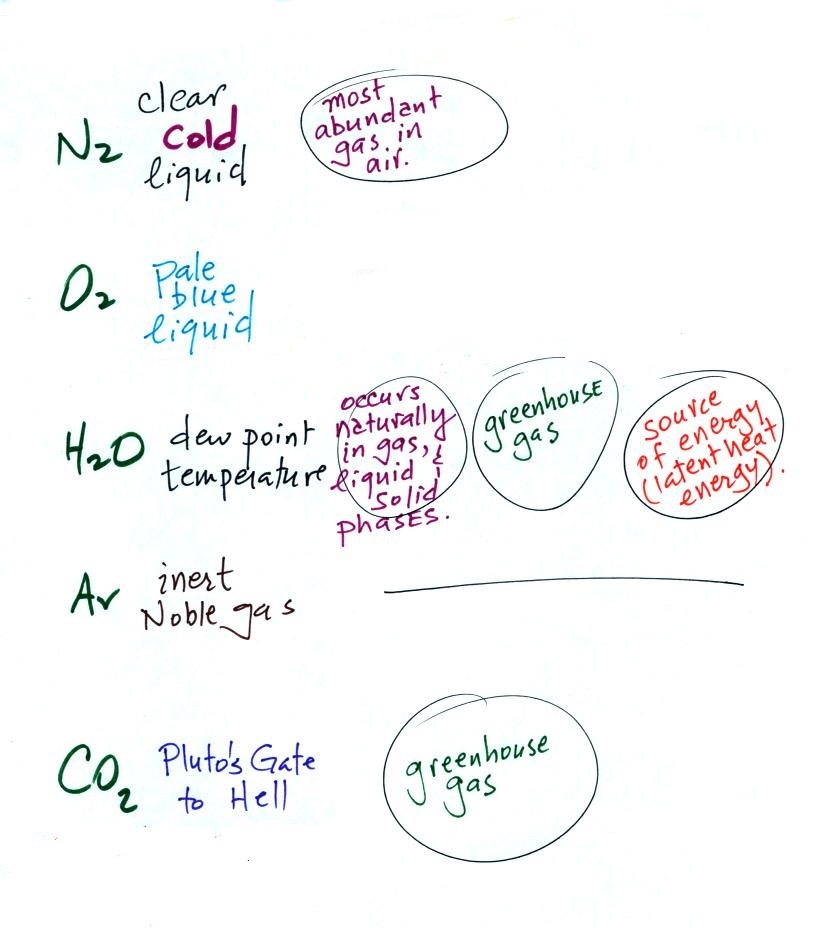 N2
clear
cold
liquid
most
abundant
gas in
air.
O2
Pale
blue
liquid
H2O
dew point
temperature
occurs
naturally
in gas,
liquid &
solid
phases.
greenhouse
gas
source
of energy
(latent heat
energy).
Ar
inert
Noble gas
CO2
Pluto's Gate
to Hell
greenhouse
gas